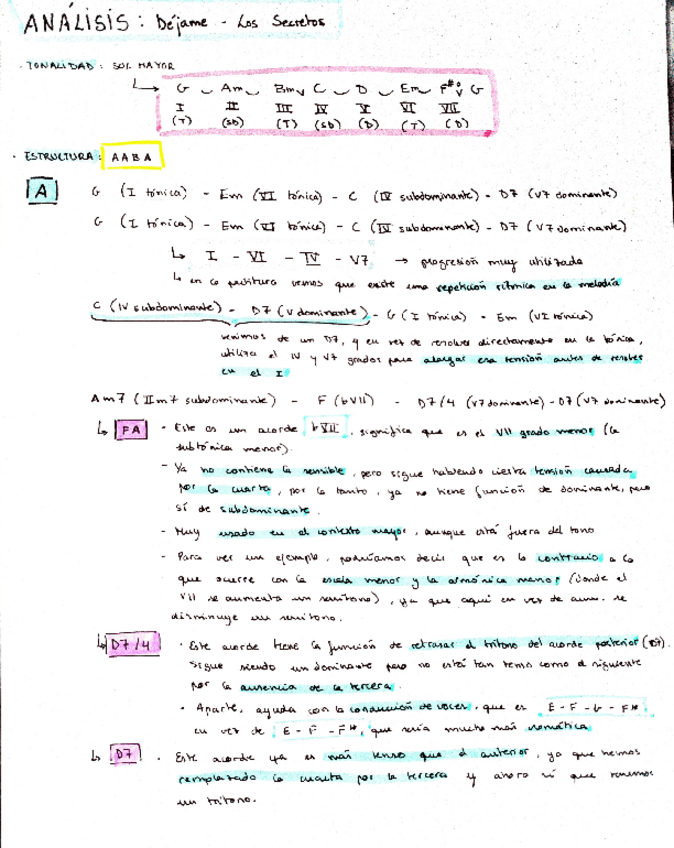 ANÁLISIS: Déjame - Los Secretos
· TONALIDAD: SOL MAYOR
G Am Bm C D Em F#º G
I II III IV V VI VII
(T) (sb) (T) (sb) (D) (T) (D)
· ESTRUCTURA: AABA
A G (I tónica) - Em (VI tónica) - C (IV subdominante) - D7 (V7 dominante)
G (I tónica) - Em (VI tónica) - C (IV subdominante) - D7 (V7 dominante)
I - VI - IV - V7 → progresión muy utilizada
en la partitura vemos que existe una repetición rítmica en la melodía
C (IV subdominante) - D7 (V dominante) - G (I tónica) - Em (VI tónica)
venimos de un D7, y en vez de resolver directamente en la tónica,
utiliza el IV y V7 grados para alargar esa tensión antes de resolver
en el I
Am7 (IIm7 subdominante) - F (bVII) - D7/4 (V7 dominante) - D7 (V7 dominante)
FA · Este es un acorde bVII, significa que es el VII grado menor (la
subtónica menor).
- Ya no contiene la sensible, pero sigue habiendo cierta tensión causada
por la cuarta, por lo tanto, ya no tiene función de dominante, pero
sí de subdominante.
- Muy usado en el contexto mayor, aunque está fuera del tono
- Para ver un ejemplo, podríamos decir que es lo contrario a lo
que ocurre con la escala menor y la armónica menor (donde el
VII se aumenta un semitono), ya que aquí en vez de aum. se
disminuye un semitono.
D7/4 · Este acorde tiene la función de retrasar el tritono del acorde posterior (D7).
Sigue siendo un dominante pero no está tan tenso como el siguiente
por la ausencia de la tercera.
· Aparte, ayuda con la conducción de voces, que es E - F - G - F#
en vez de E - F - F#, que sería mucho más cromática
D7 · Este acorde ya es más tenso que el anterior, ya que hemos
remplazado la cuarta por la tercera y ahora sí que tenemos
un tritono.